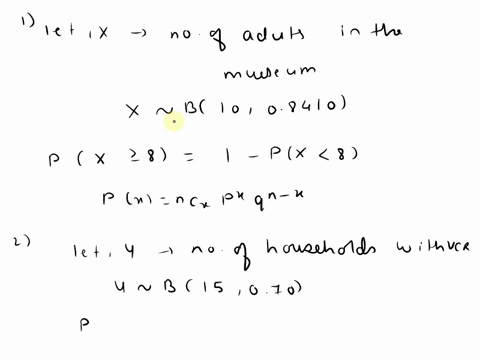 1) let, X → no. of aduts in the
museum
X ~ B( 10, 0.8410)
P ( X ≥ 8) = 1 - P( X < 8)
P (x) = n Cx p^x q^n-x
2) let, Y → no. of households with VCR
Y ~ B ( 15, 0.70)
P